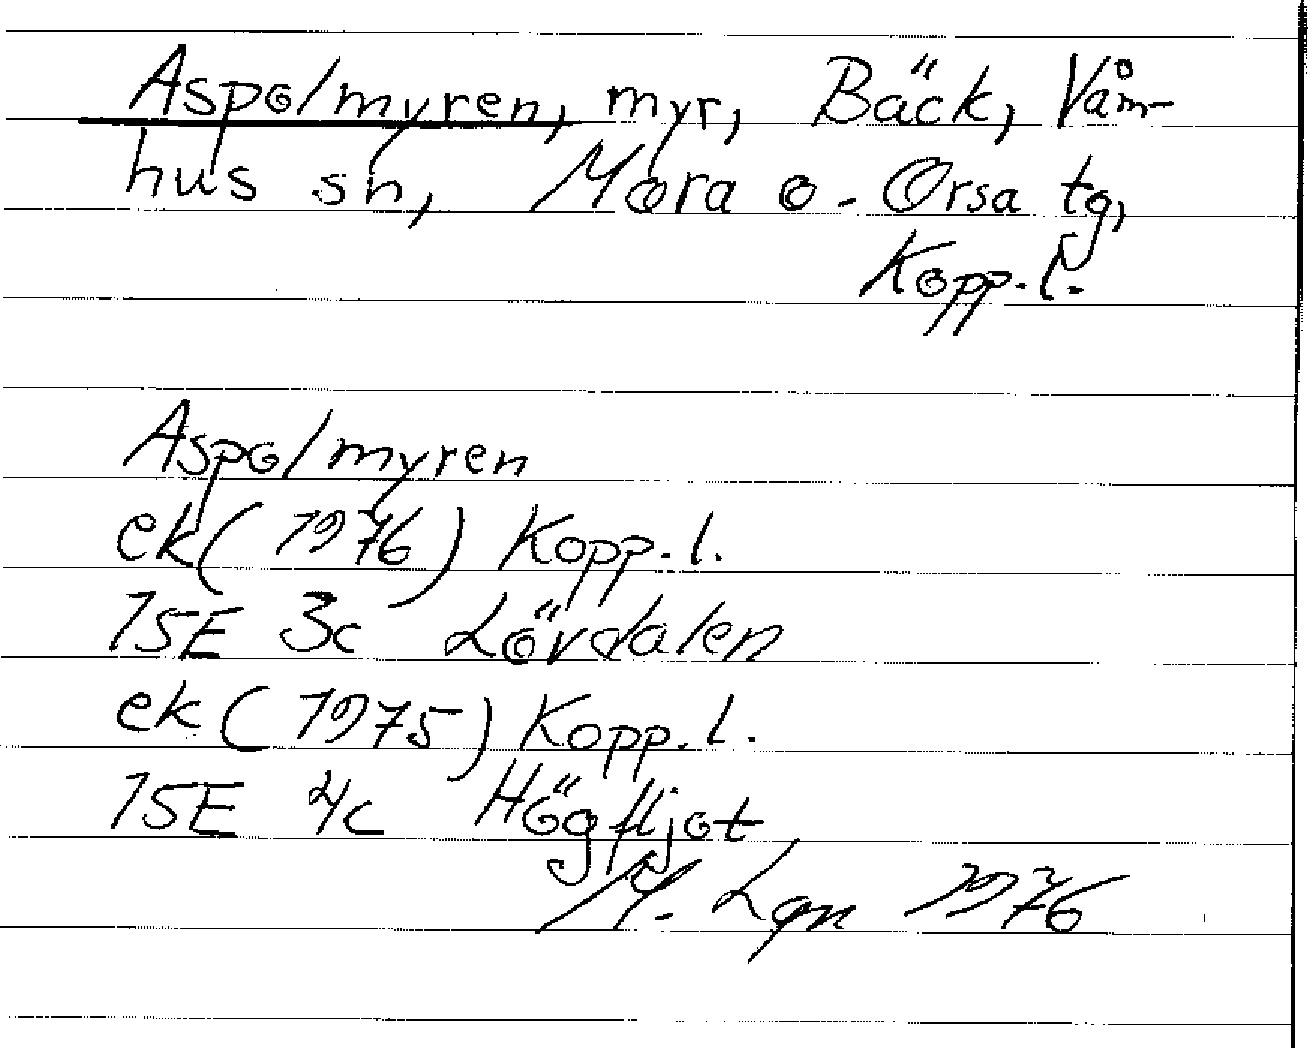 Aspolmyren, myr, Bäck, Våm-
hus sn, Mora o. Orsa tg,
Kopp. l.
Aspolmyren
ek (1976) Kopp. l.
15E 3c Lövdalen
ek (1975) Kopp. l.
15E 4c Högfljot
M. Lgn 1976